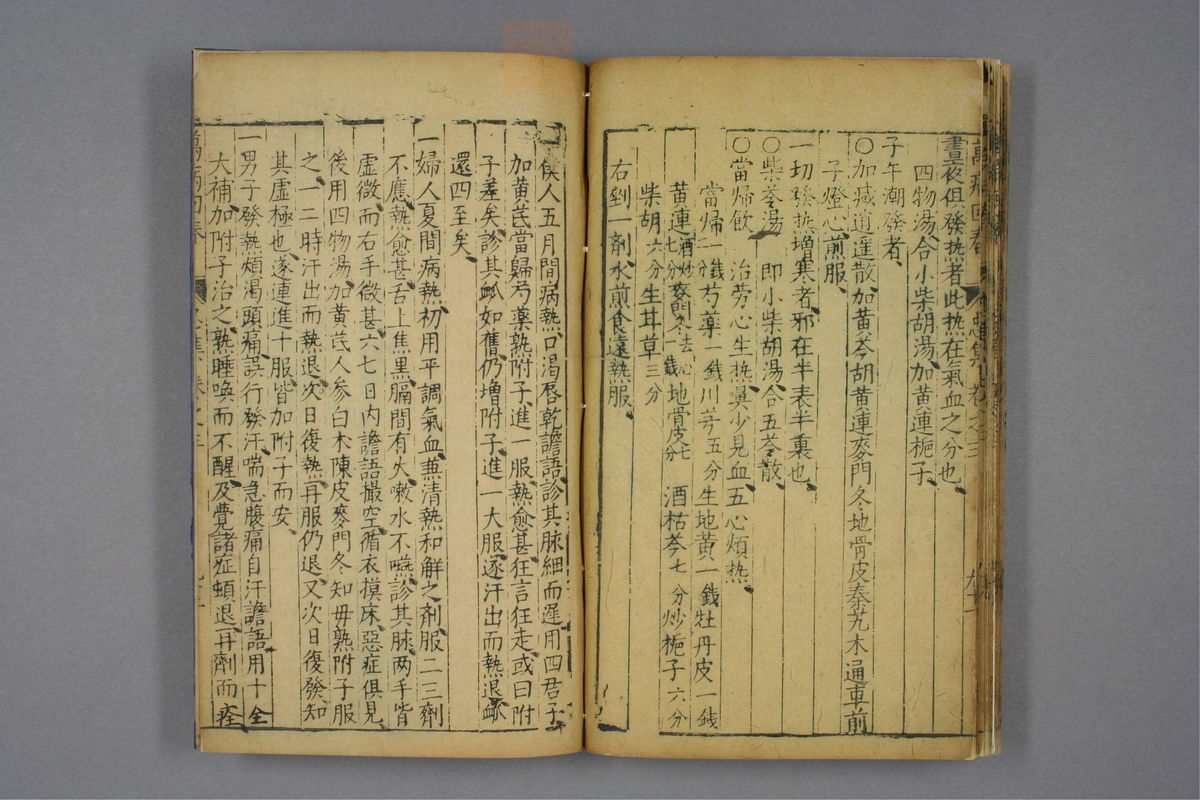 晝夜俱發热者此热在氣血之分也
四物湯合小柴胡湯加黄連梔子
子午潮發者
〇加減逍遥散加黄芩胡黄連麥門冬地骨皮秦艽木通車前
子燈心煎服
一切發热增寒者邪在半表半裏也
〇柴苓湯 即小柴胡湯合五苓散
〇當歸飲 治劳心生热鼻少見血五心煩热
當歸一錢二分芍藥一錢川芎五分生地黄一錢牡丹皮一錢
黄連酒炒七分麥門冬去心一錢地骨皮七分 酒枯芩七分炒梔子六分
柴胡六分生甘草三分
右剉一劑水煎食遠熱服
一僕人五月間病熱口渴唇乾譫語診其脉細而遲用四君子
加黄芪當歸芍藥熟附子進一服熱愈甚狂言狂走或曰附
子差矣診其脉如舊仍增附子進一大服遂汗出而熱退脉
還四至矣
一婦人夏間病熱初用平調氣血兼清熱和解之剤服二三劑
不應熱愈甚舌上焦黑膈間有火嗽水不嚥診其脉两手皆
虚微而右手微甚六七日內譫語撮空循衣摸床惡症俱見
後用四物湯加黄芪人参白术陳皮麥門冬知毋熟附子服
之一二時汗出而熱退次日復熱再服仍退又次日復發知
其虚極也遂連進十服皆加附子而安
一男子發熱煩渴頭痛誤行發汗喘急腹痛自汗譫語用十全
大補加附子治之熟睡喚而不醒及覺諸症頓退再劑而痊
萬病回春